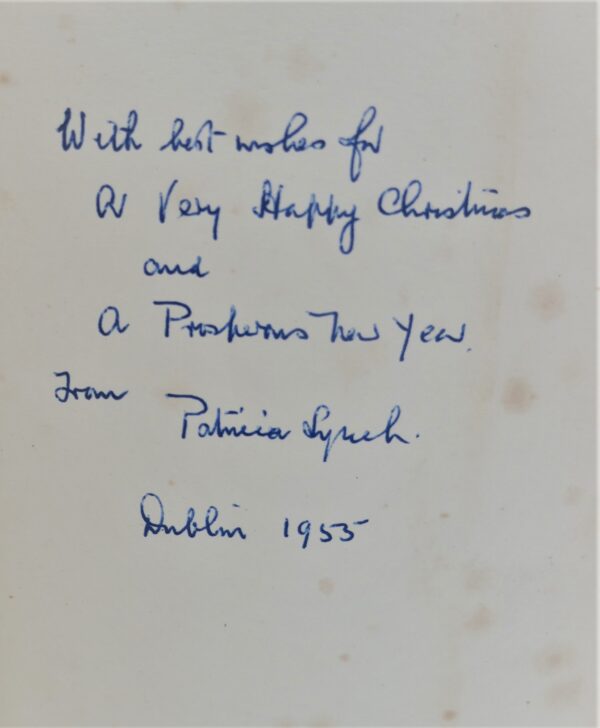 With best wishes for
A Very Happy Christmas
and
A Prosperous New Year.
From
Patricia Lynch.
Dublin 1955